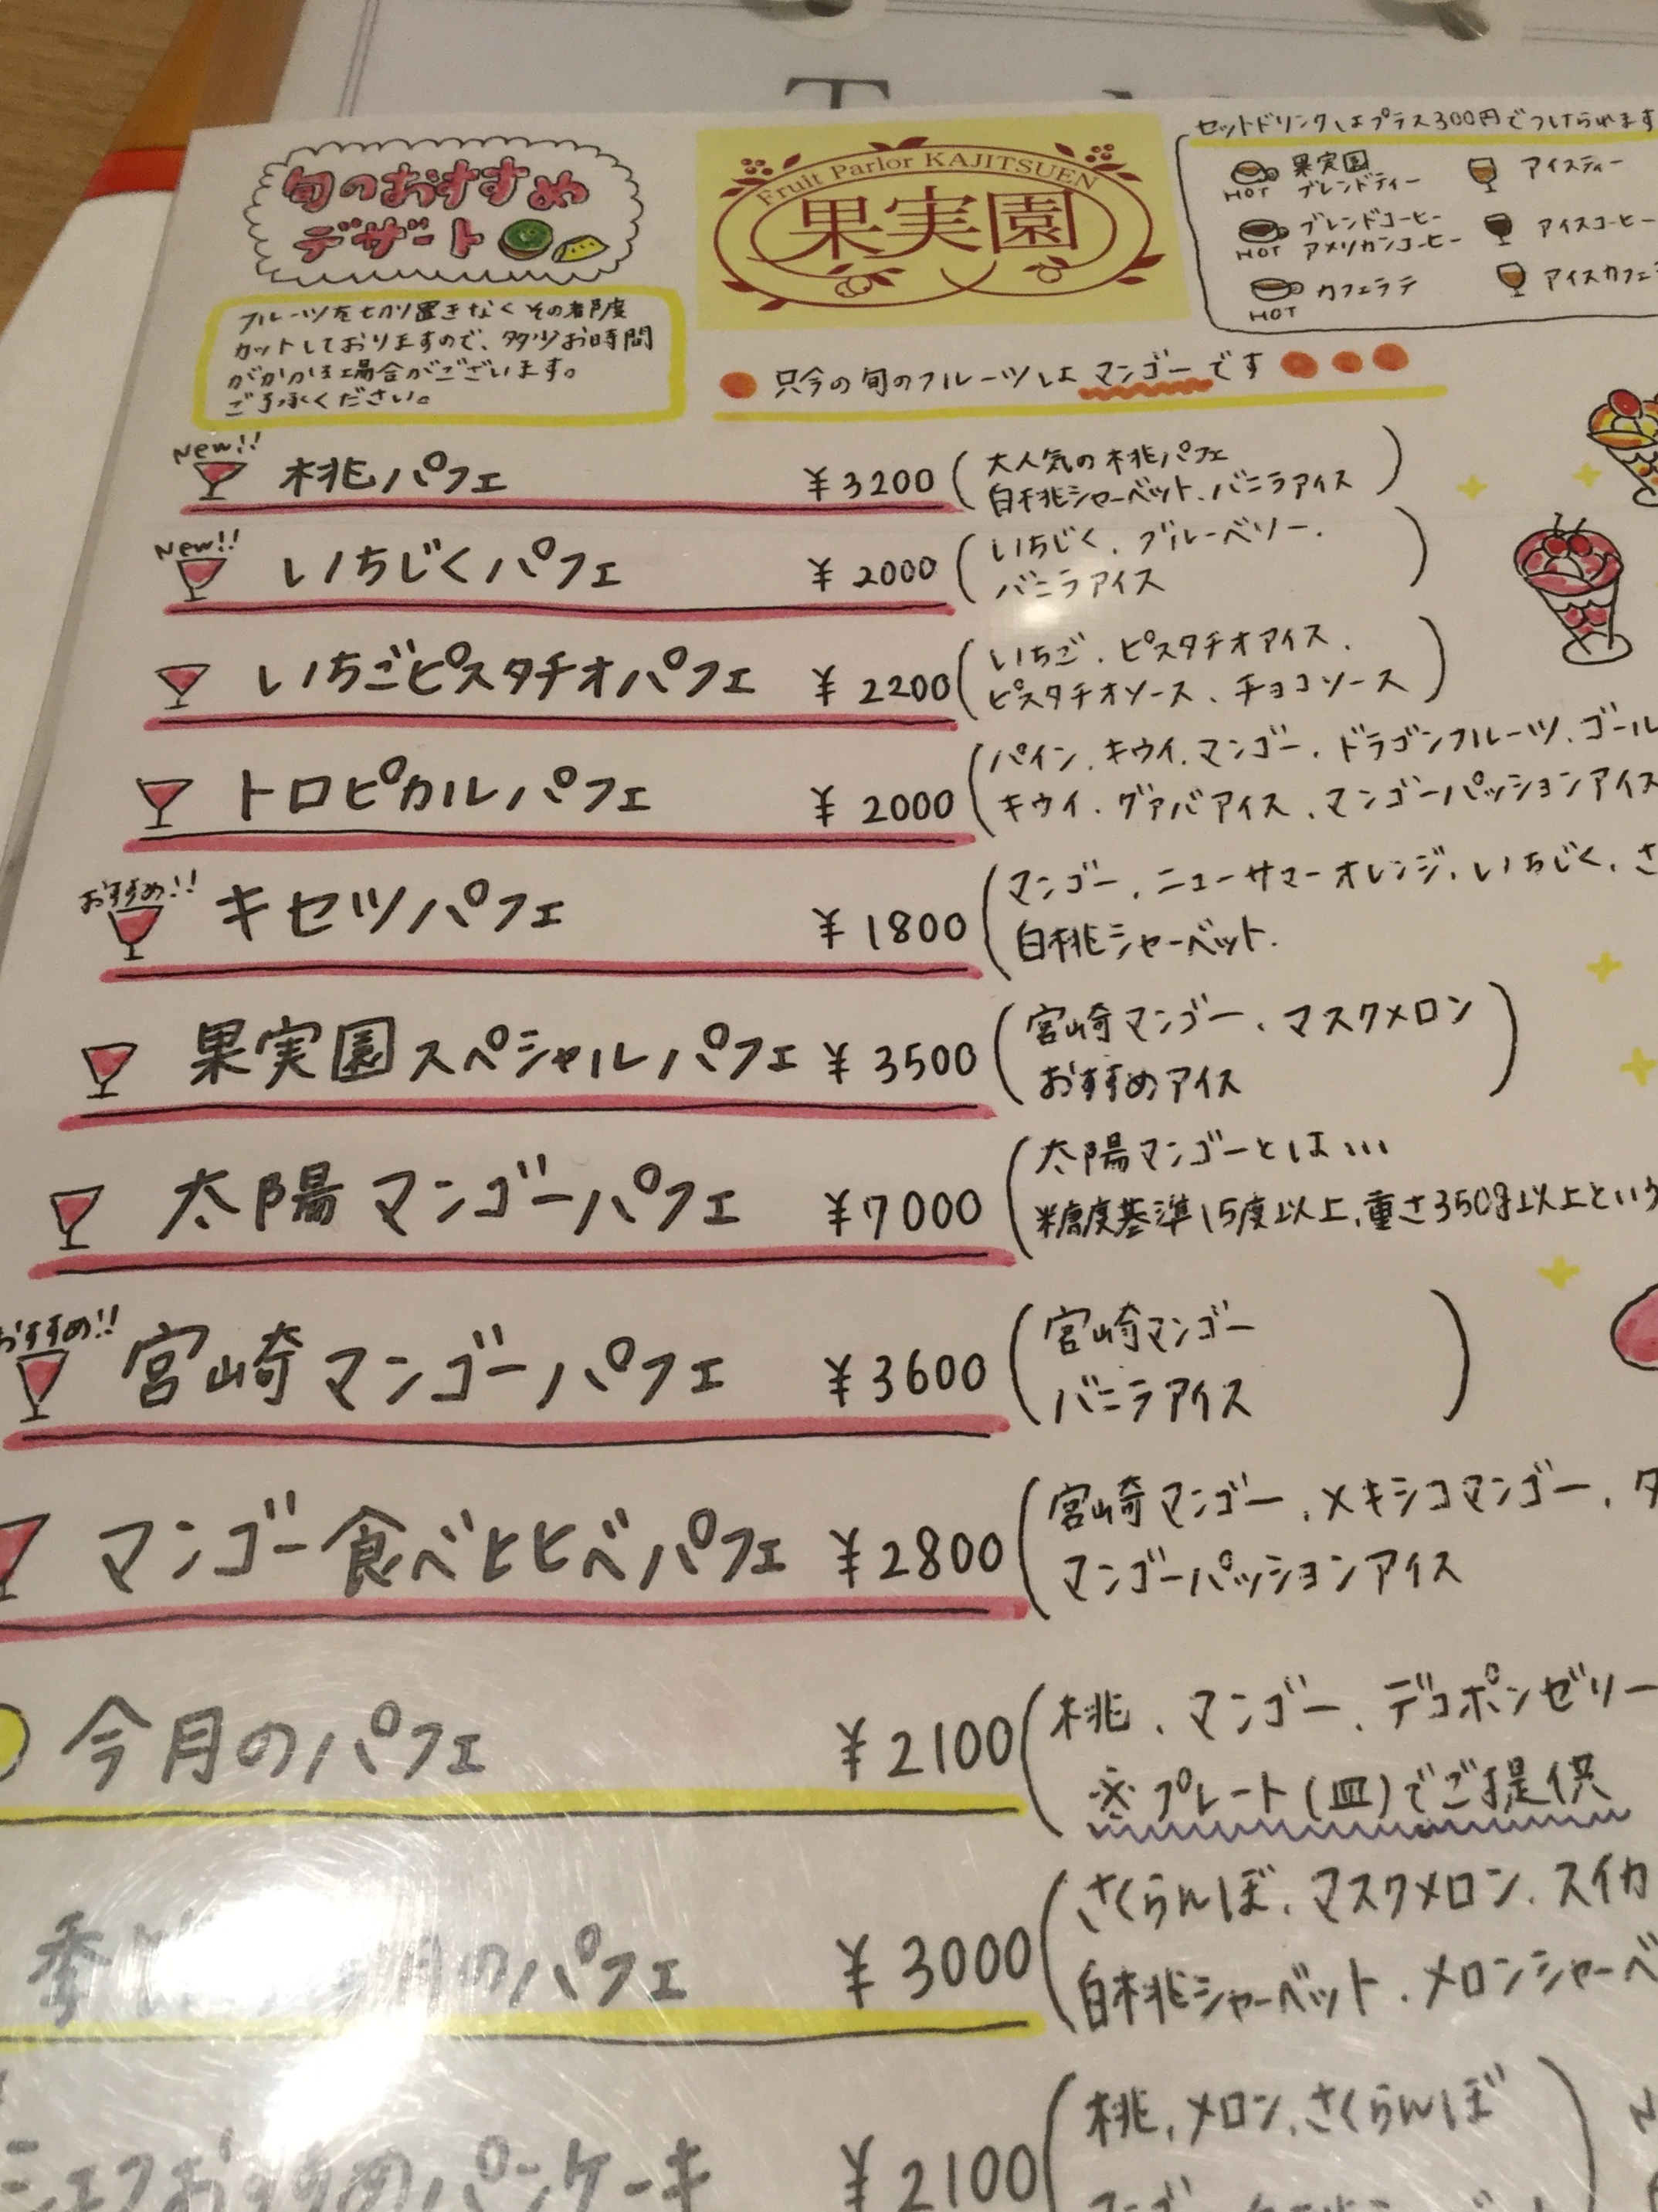 旬のおすすめ
デザート
フルーツを切り置きなくその都度
カットしておりますので、多少お時間
がかかる場合がございます。
ご了承ください。
Fruit Parlor KAJITSUEN
果実園
セットドリンクはプラス300円でつけられます
HOT 果実園
ブレンドティー
アイスティー
HOT ブレンドコーヒー
アメリカンコーヒー
アイスコーヒー
HOT カフェラテ
アイスカフェ
只今の旬のフルーツはマンゴーです
New!! 桃パフェ ¥3200 (大人気の桃パフェ
白桃シャーベット、バニラアイス)
New!! いちじくパフェ ¥2000 (いちじく、ブルーベリー、
バニラアイス)
いちごピスタチオパフェ ¥2200 (いちご、ピスタチオアイス、
ピスタチオソース、チョコソース)
トロピカルパフェ ¥2000 (パイン、キウイ、マンゴー、ドラゴンフルーツ、ゴール
キウイ、グァバアイス、マンゴーパッションアイス
おすすめ!! キセツパフェ ¥1800 (マンゴー、ニューサマーオレンジ、いちじく、さ
白桃シャーベット、
果実園スペシャルパフェ ¥3500 (宮崎マンゴー、マスクメロン
おすすめアイス)
太陽マンゴーパフェ ¥7000 (太陽マンゴーとは...
糖度基準15度以上、重さ350g以上という
おすすめ!! 宮崎マンゴーパフェ ¥3600 (宮崎マンゴー
バニラアイス)
マンゴー食べヒヒベパフェ ¥2800 (宮崎マンゴー、メキシコマンゴー、タ
マンゴーパッションアイス
今月のパフェ ¥2100 (桃、マンゴー、デコポンゼリー
※プレート(皿)でご提供
季 月のパフェ ¥3000 (さくらんぼ、マスクメロン、スイカ
白桃シャーベット、メロンシャーベ
シェフおすすめパンケーキ ¥2100 (桃、メロン、さくらんぼ